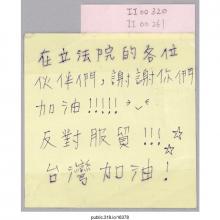 II 00 320
II 00 261
在立法院的各位
伙伴們，謝謝你們
加油!!!!! >⌄<
反對服貿!!! ☆
台灣加油! ☆
public.318.io/16378